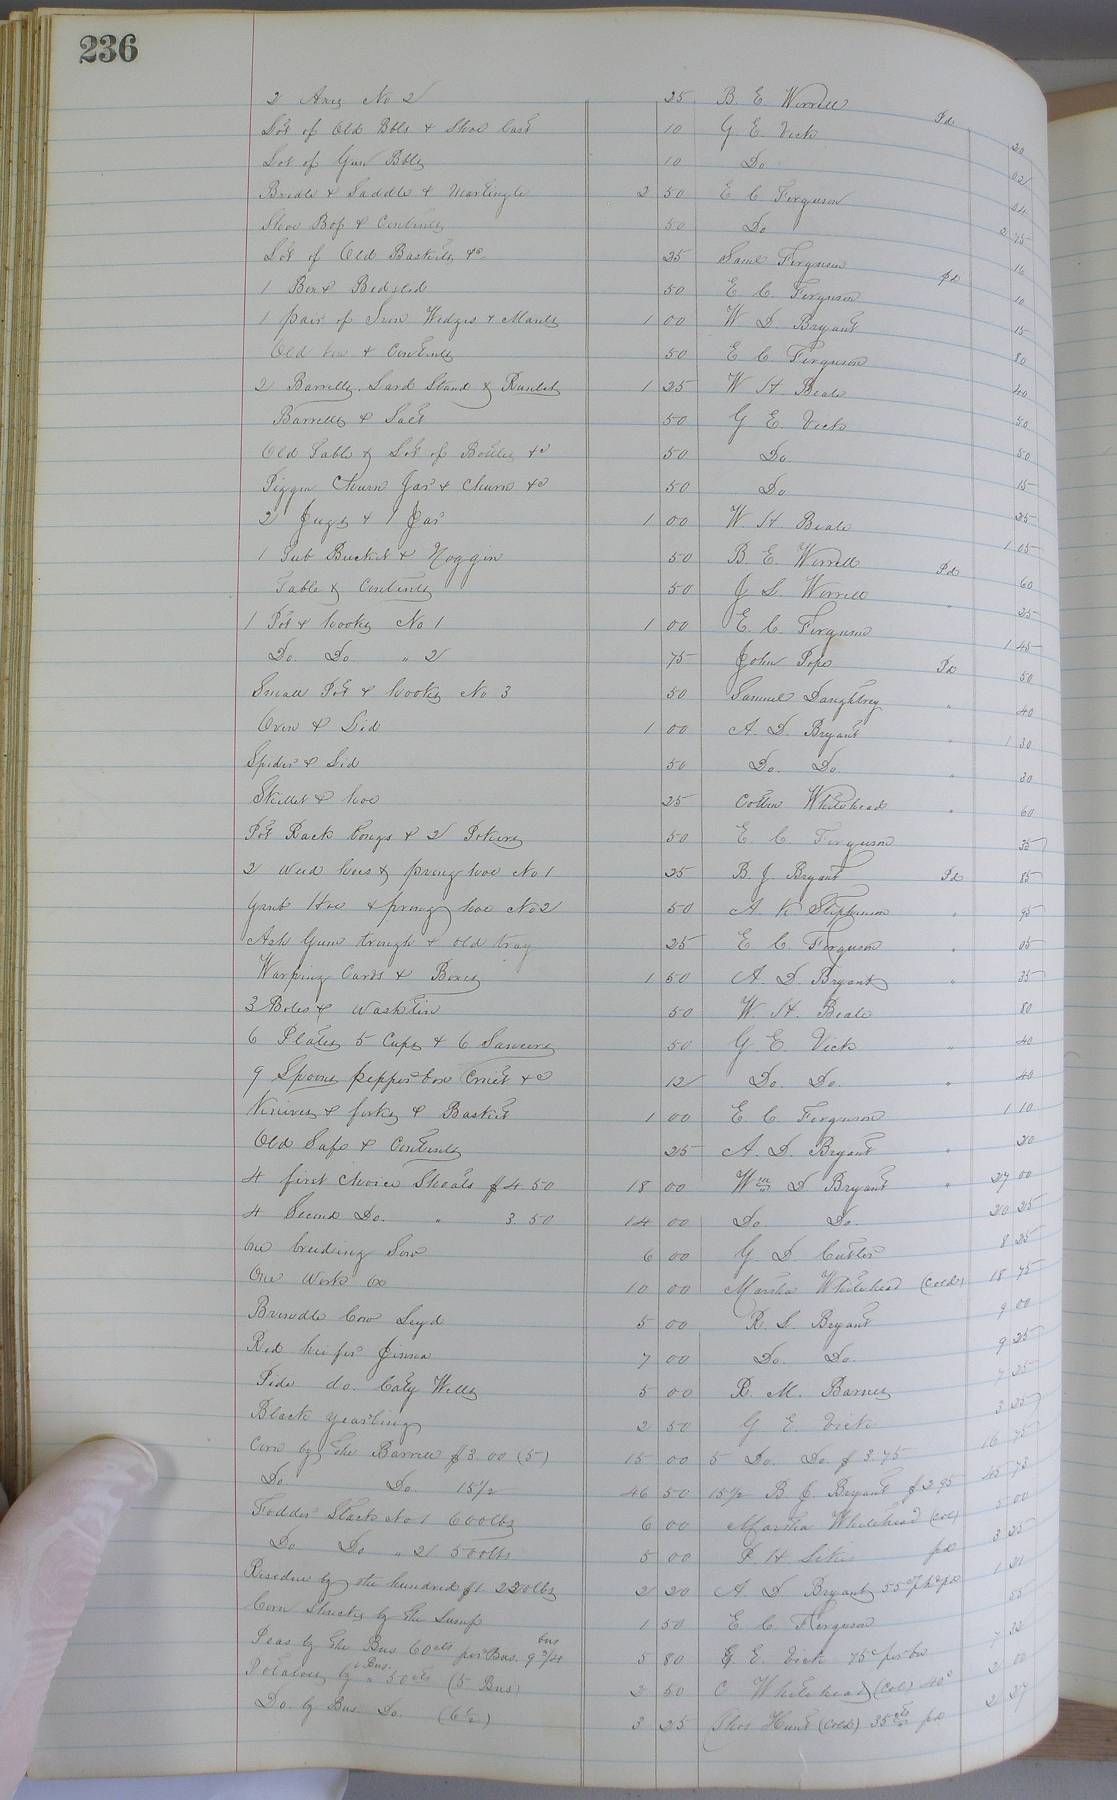 236
2 Axes No 2 25 B. E. Worrell Pd 20
Lot of Old Bbls & Shoe Last 10 G E. Vick 02
Lot of Gum Bbls 10 Do 04
Bridle & Saddle & Martingle 2 50 E C Ferguson 2 75
Shoe Box & Contents 50 Do 16
Lot of Old Baskets &c 25 Saml Ferguson pd 10
1 Box & Bedsted 50 E. C. Ferguson 15
1 pair of Iron Wedges & Mauls 1 00 W D Bryant 80
Old & Contents 50 E C Ferguson 40
2 Barrells Lard Stand & Runlet 1 25 W H Beale 50
Barrells & Salt 50 G E. Vick 50
Old Table & Lot of Bottles &c 50 Do 15
Piggin Churn Jar & Churn &c 50 Do 25
2 Jugs & 1 Jar 1 00 W. H Beale 1 05
1 Tub Bucket & Noggin 50 B E. Worrell Pd 60
Table & Contents 50 J S Worrell " 25
1 Pot & hooks No 1 1 00 E. C. Ferguson 1 45
Do. Do. " 2 75 John Pope Pd 50
Small Pot & hooks No 3 50 Samuel Daughtrey " 40
Oven & Lid 1 00 A. D. Bryant " 1 30
Spider & Lid 50 Do. Do. " 30
Skillet & hoe 25 Cotten Whitehead " 60
Pot Rack tongs & 2 Pokers 50 E C Ferguson 35
2 weed hoes & prong hoe No 1 25 B. J. Bryant Pd 85
Grub Hoe & prong hoe No 2 50 A. K Stephenson " 95
Ash Gum trough & old tray 25 E C Ferguson " 05
Warping Bars & Boxes 1 50 A. D. Bryant " 35
3 Boles & wash tin 50 W H. Beale 80
6 Plates 5 Cups & 6 Saucers 50 G E. Vick " 40
9 Spoons pepper box Cruet &c 12 Do. Do. " 40
Knives & forks & Basket 1 00 E. C. Ferguson 1 10
Old Safe & Contents 25 A. D. Bryant " 20
4 first choice Shoats $4.50 18 00 Wm D Bryant " 27 00
4 Second Do. " 3.50 14 00 Do Do. 20 25
One breeding Sow 6 00 G D Cutler 8 25
One Work Ox 10 00 Martha Whitehead (Cold) 18 75
Brindle Cow Seyd 5 00 R. S. Bryant 9 00
Red heifer Jinnea 7 00 Do. Do. 9 25
Pide do. Caty Wells 5 00 R. M. Barnes 7 25
Black Yearling 2 50 G E. Vick 3 25
Corn by the Barrell $3.00 (5) 15 00 5 Do. Do. $3.75 16 75
Do Do. 15½ 46 50 15½ B. J. Bryant $2.95 45 73
Fodder Stack No 1 600 lbs 6 00 Martha Whitehead (col) 5 00
Do Do " 2 500 lbs 5 00 P. H. pd 3 25
Residue by the hundred $1 220 lbs 2 20 A D Bryant 55cts pd 1 21
Corn Shucks by the Lump 1 50 E. C. Ferguson 55
Peas by the Bus. 60cts per Bus. 9¾ bus 5 80 G E. Vick 75c per bu 7 32
Potatoes by Bus. " 50cts (5 Bus) 2 50 C Whitehead (Col) 40c 2 00
Do. by Bus. Do (6½) 3 25 Thos Hunt (Cold) 35cts pd 2 27